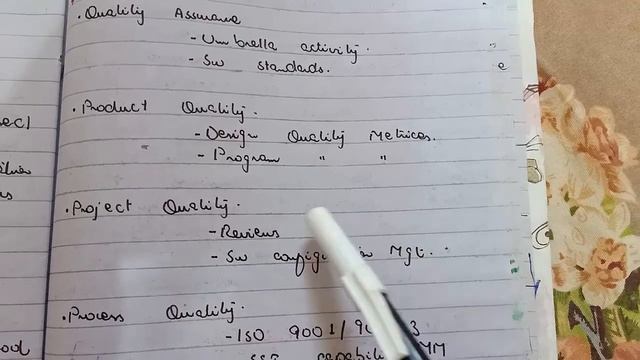 . Quality Assurance
- Umbrella activity.
- Sw standards.
. Product Quality.
- Design Quality Metrices.
- Program " "
. Project Quality.
- Reviews
- Sw Mgt.
. Process Quality.
- ISO 9001/